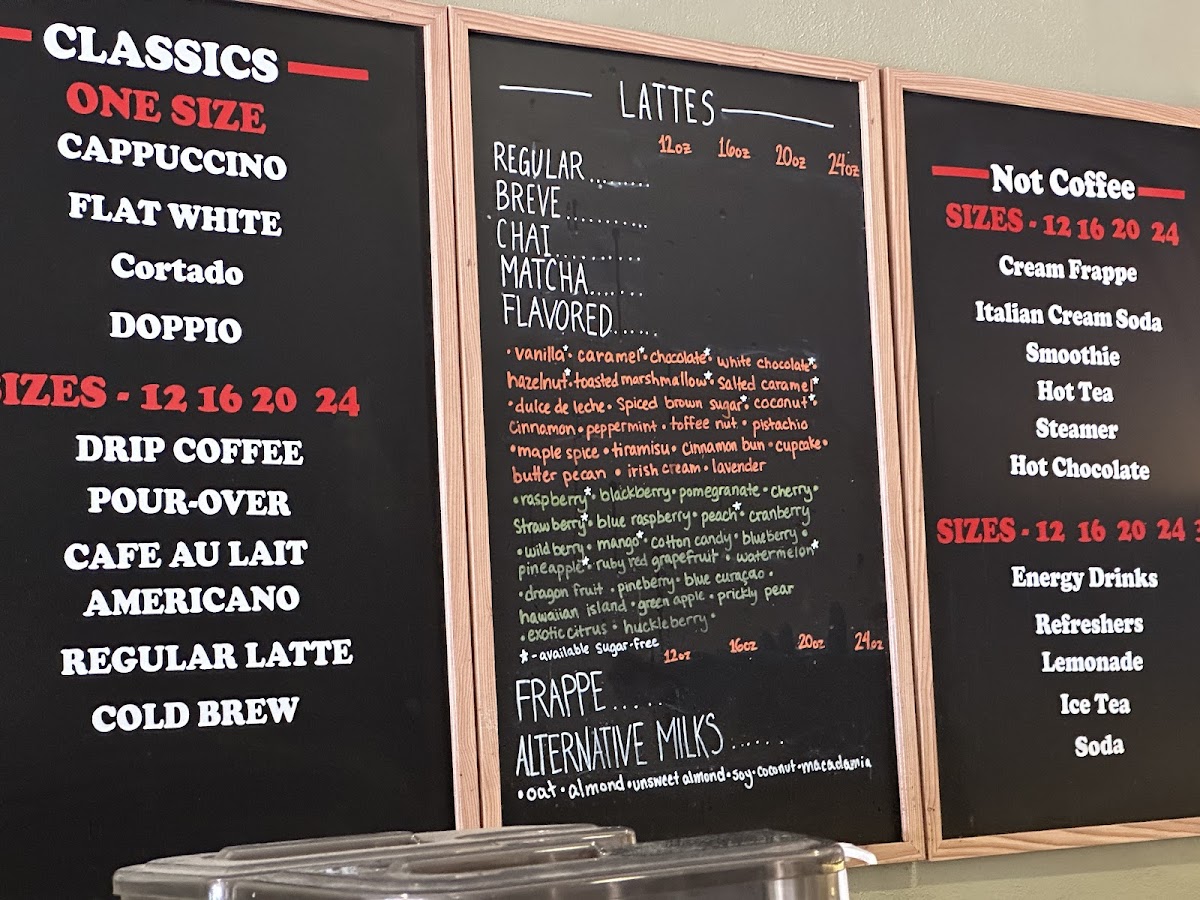 CLASSICS
ONE SIZE
CAPPUCCINO
FLAT WHITE
Cortado
DOPPIO
SIZES - 12 16 20 24
DRIP COFFEE
POUR-OVER
CAFE AU LAIT
AMERICANO
REGULAR LATTE
COLD BREW
LATTES
12oz 16oz 20oz 24oz
REGULAR........
BREVE..........
CHAI...........
MATCHA.......
FLAVORED......
•vanilla*• caramel*• chocolate*• white chocolate*•
hazelnut*• toasted marshmallow*• salted caramel*
•dulce de leche• Spiced brown sugar*• coconut*•
cinnamon•peppermint • toffee nut • pistachio
•maple spice •tiramisu• cinnamon bun •cupcake•
butter pecan • irish cream • lavender
•raspberry*• blackberry• pomegranate • cherry•
Strawberry*• blue raspberry• peach*• cranberry
•wildberry• mango*• cotton candy• blueberry •
pineapple*• ruby red grapefruit • watermelon*
•dragon fruit •pineberry• blue curaçao •
hawaiian island •green apple• prickly pear
•exotic citrus • huckleberry•
*-available sugar-free
12oz 16oz 20oz 24oz
FRAPPE.....
ALTERNATIVE MILKS.....
•oat•almond•unsweet almond•soy•coconut•macadamia
Not Coffee
SIZES - 12 16 20 24
Cream Frappe
Italian Cream Soda
Smoothie
Hot Tea
Steamer
Hot Chocolate
SIZES - 12 16 20 24
Energy Drinks
Refreshers
Lemonade
Ice Tea
Soda